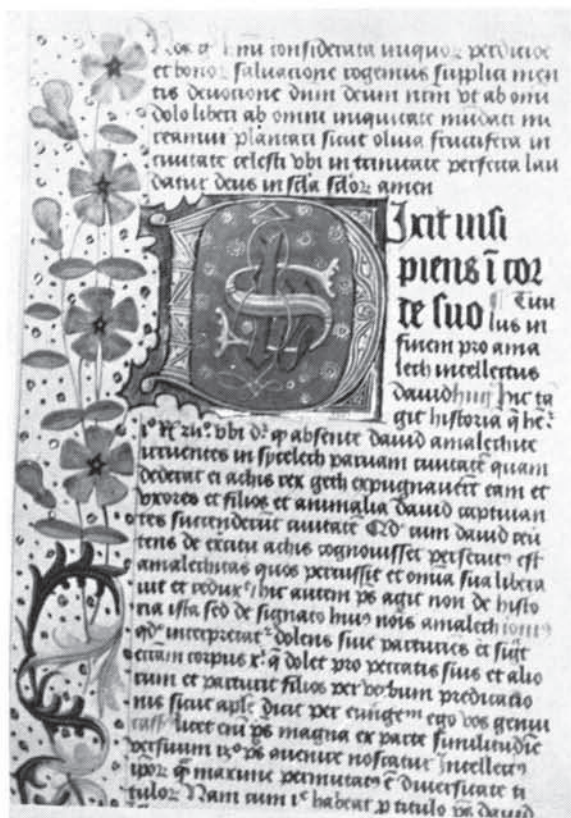 considerata iniquoꝝ perdicioe
et bonoꝝ saluacione rogemus supplici men
tis deuocione dum deum nrm vt ab omi
dolo liberi ab omni iniquitate mūdati
plantari sicut oliua fructifera in
ciuitate celesti vbi in trinitate perfecta lau
datur deus in scła scłoꝝ amen
Dixit insi
piens ī cor
de suo Titu
lus in
finem pro ama
lech intellectus
dauid hic ta
git historia
vbi absente dauid amalechite
irruentes in sycelech paruam ciuitatē quam
dederat ei achis rex geth expugnauerūt eam et
vxores et filios et animalia dauid captiuan
tes succenderūt ciuitatē cum dauid reu
tens de achis cognouisset persecutꝰ est
amalechitas quos percussit et omīa sua libera
uit et hic autem ps agit non de histo
ria ista sed de signato huiꝰ nōis amalech
interpretat dolens siue parturiēs et
corpus dolet pro peccatis suis et alio
rum et parturit filios per verbum predicacio
nis sicut dicit per euuangeᵐ ego vos genui
licet ps magna ex parte similitudīe
ps noscatur Intellectꝰ
maxime permutatꝰ diuersitate ti
tuloꝝ Nam cum habeat titulo ps dauid